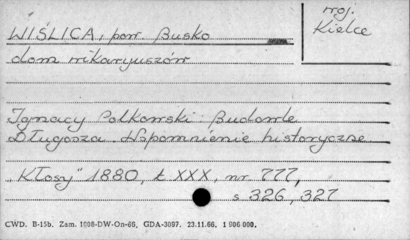 WIŚLICA, pow. Busko
woj. Kielce
dom wikaryuszów
Ignacy Polkowski: Budowle
Długosza. Wspomnienie historyczne
„Kłosy" 1880, t XXX, nr. 777,
s 326, 327
CWD. B-15b. Zam. 1008-DW-On-65, GDA-3097. 23.11.66. 1 000 000.